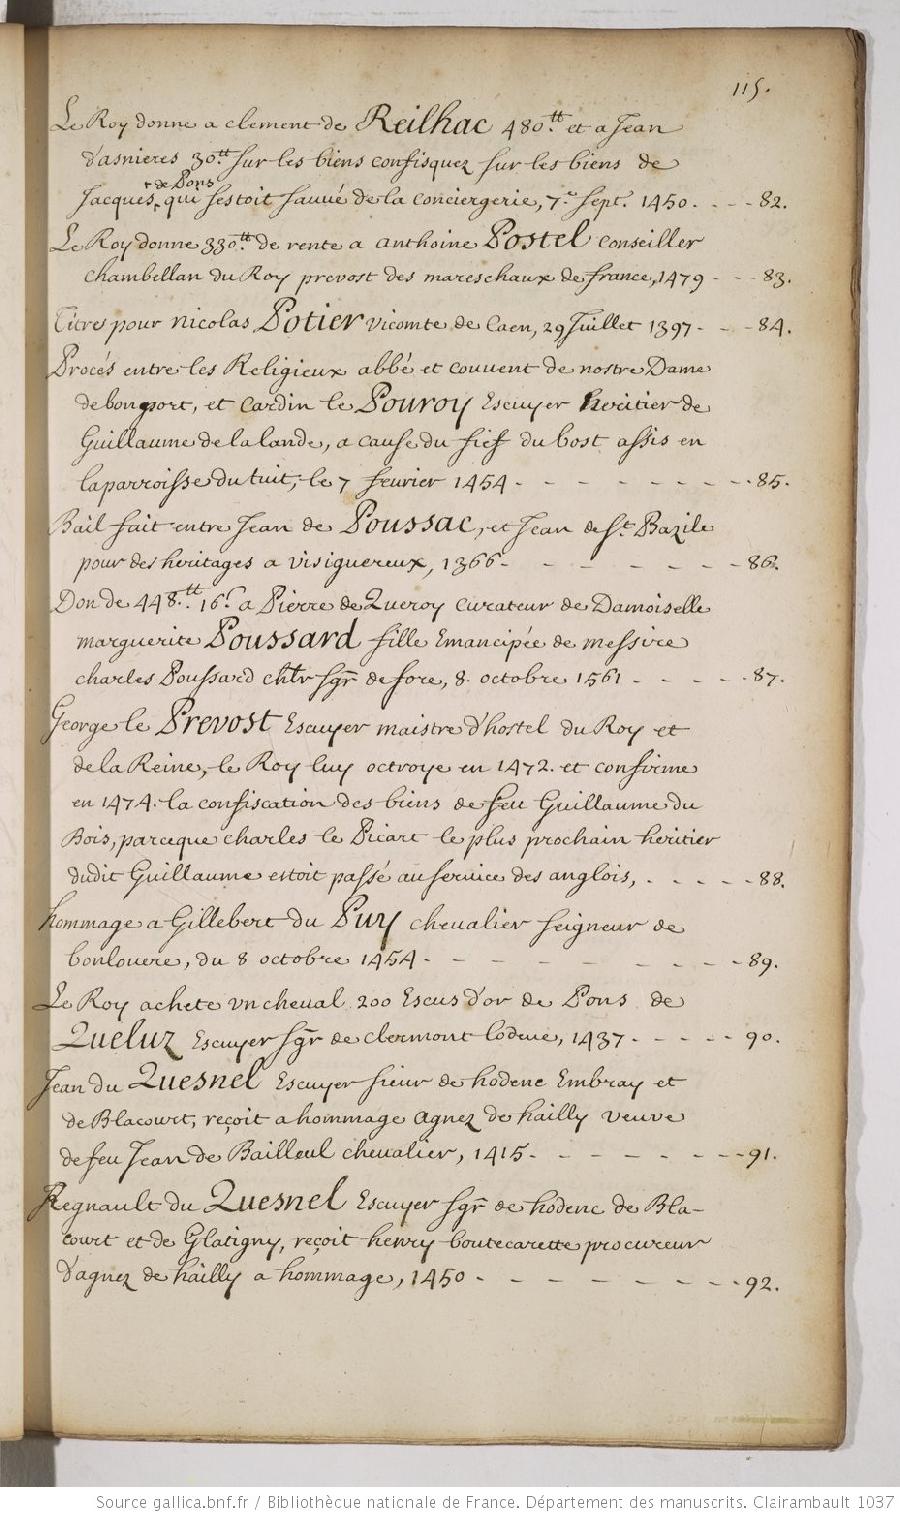 115.
Le Roy donne a clement de Reilhac 480.tt et a Jean
d'asnieres 30tt sur les biens confisquez sur les biens de
Jacques + de Pons qui sestoit sauvé de la conciergerie, 7.e sept. 1450. - - - 82.
Le Roy donne 330.tt de rente a anthoine Postel conseiller
chambellan du Roy prevost des mareschaux de france, 1479 - - - 83.
Titres pour nicolas Potier vicomte de Caen, 29 Juillet 1397 - - - 84.
Procés entre les Religieux abbé et couvent de nostre Dame
de bonport, et Cardin le Pouroy Escuyer heritier de
Guillaume de la lande, a cause du fief du bost assis en
la parroisse du tuit, le 7 fevrier 1454 - - - - - - - 85.
Bail fait entre Jean de Poussac, et Jean de St. Bazile
pour des heritages a visiguereux, 1366 - - - - - - - 86.
Don de 448.tt 16.s a Pierre de Queroy curateur de Damoiselle
marguerite Poussard fille Emancipée de messire
charles Poussard chlr sgr de fore, 8 octobre 1561 - - - - - 87.
George le Prevost Escuyer maistre d'hostel du Roy et
de la Reine, le Roy luy octroye en 1472. et confirme
en 1474. la confiscation des biens de feu Guillaume du
Bois, parceque charles le Picart le plus prochain heritier
dudit Guillaume estoit passé au service des anglois, - - - - - 88.
hommage a Gillebert du Puy chevalier seigneur de
bonlouere, du 8 octobre 1454 - - - - - - - - 89.
Le Roy achete un cheval 200 Escus d'or de Pons de
Queluz Escuyer sgr de clermont lodeve, 1437 - - - - - 90.
Jean du Quesnel Escuyer sieur de hodenc Embray et
de Blacourt, reçoit a hommage agnez de hailly veuve
de feu Jean de Bailleul chevalier, 1415 - - - - - - - 91.
Regnault du Quesnel Escuyer sgr de hodenc de Bla-
court et de Glatigny, reçoit henry boutecarette procureur
d'agnez de hailly a hommage, 1450 - - - - - - - 92.
Source gallica.bnf.fr / Bibliothèque nationale de France. Département des manuscrits. Clairambault 1037